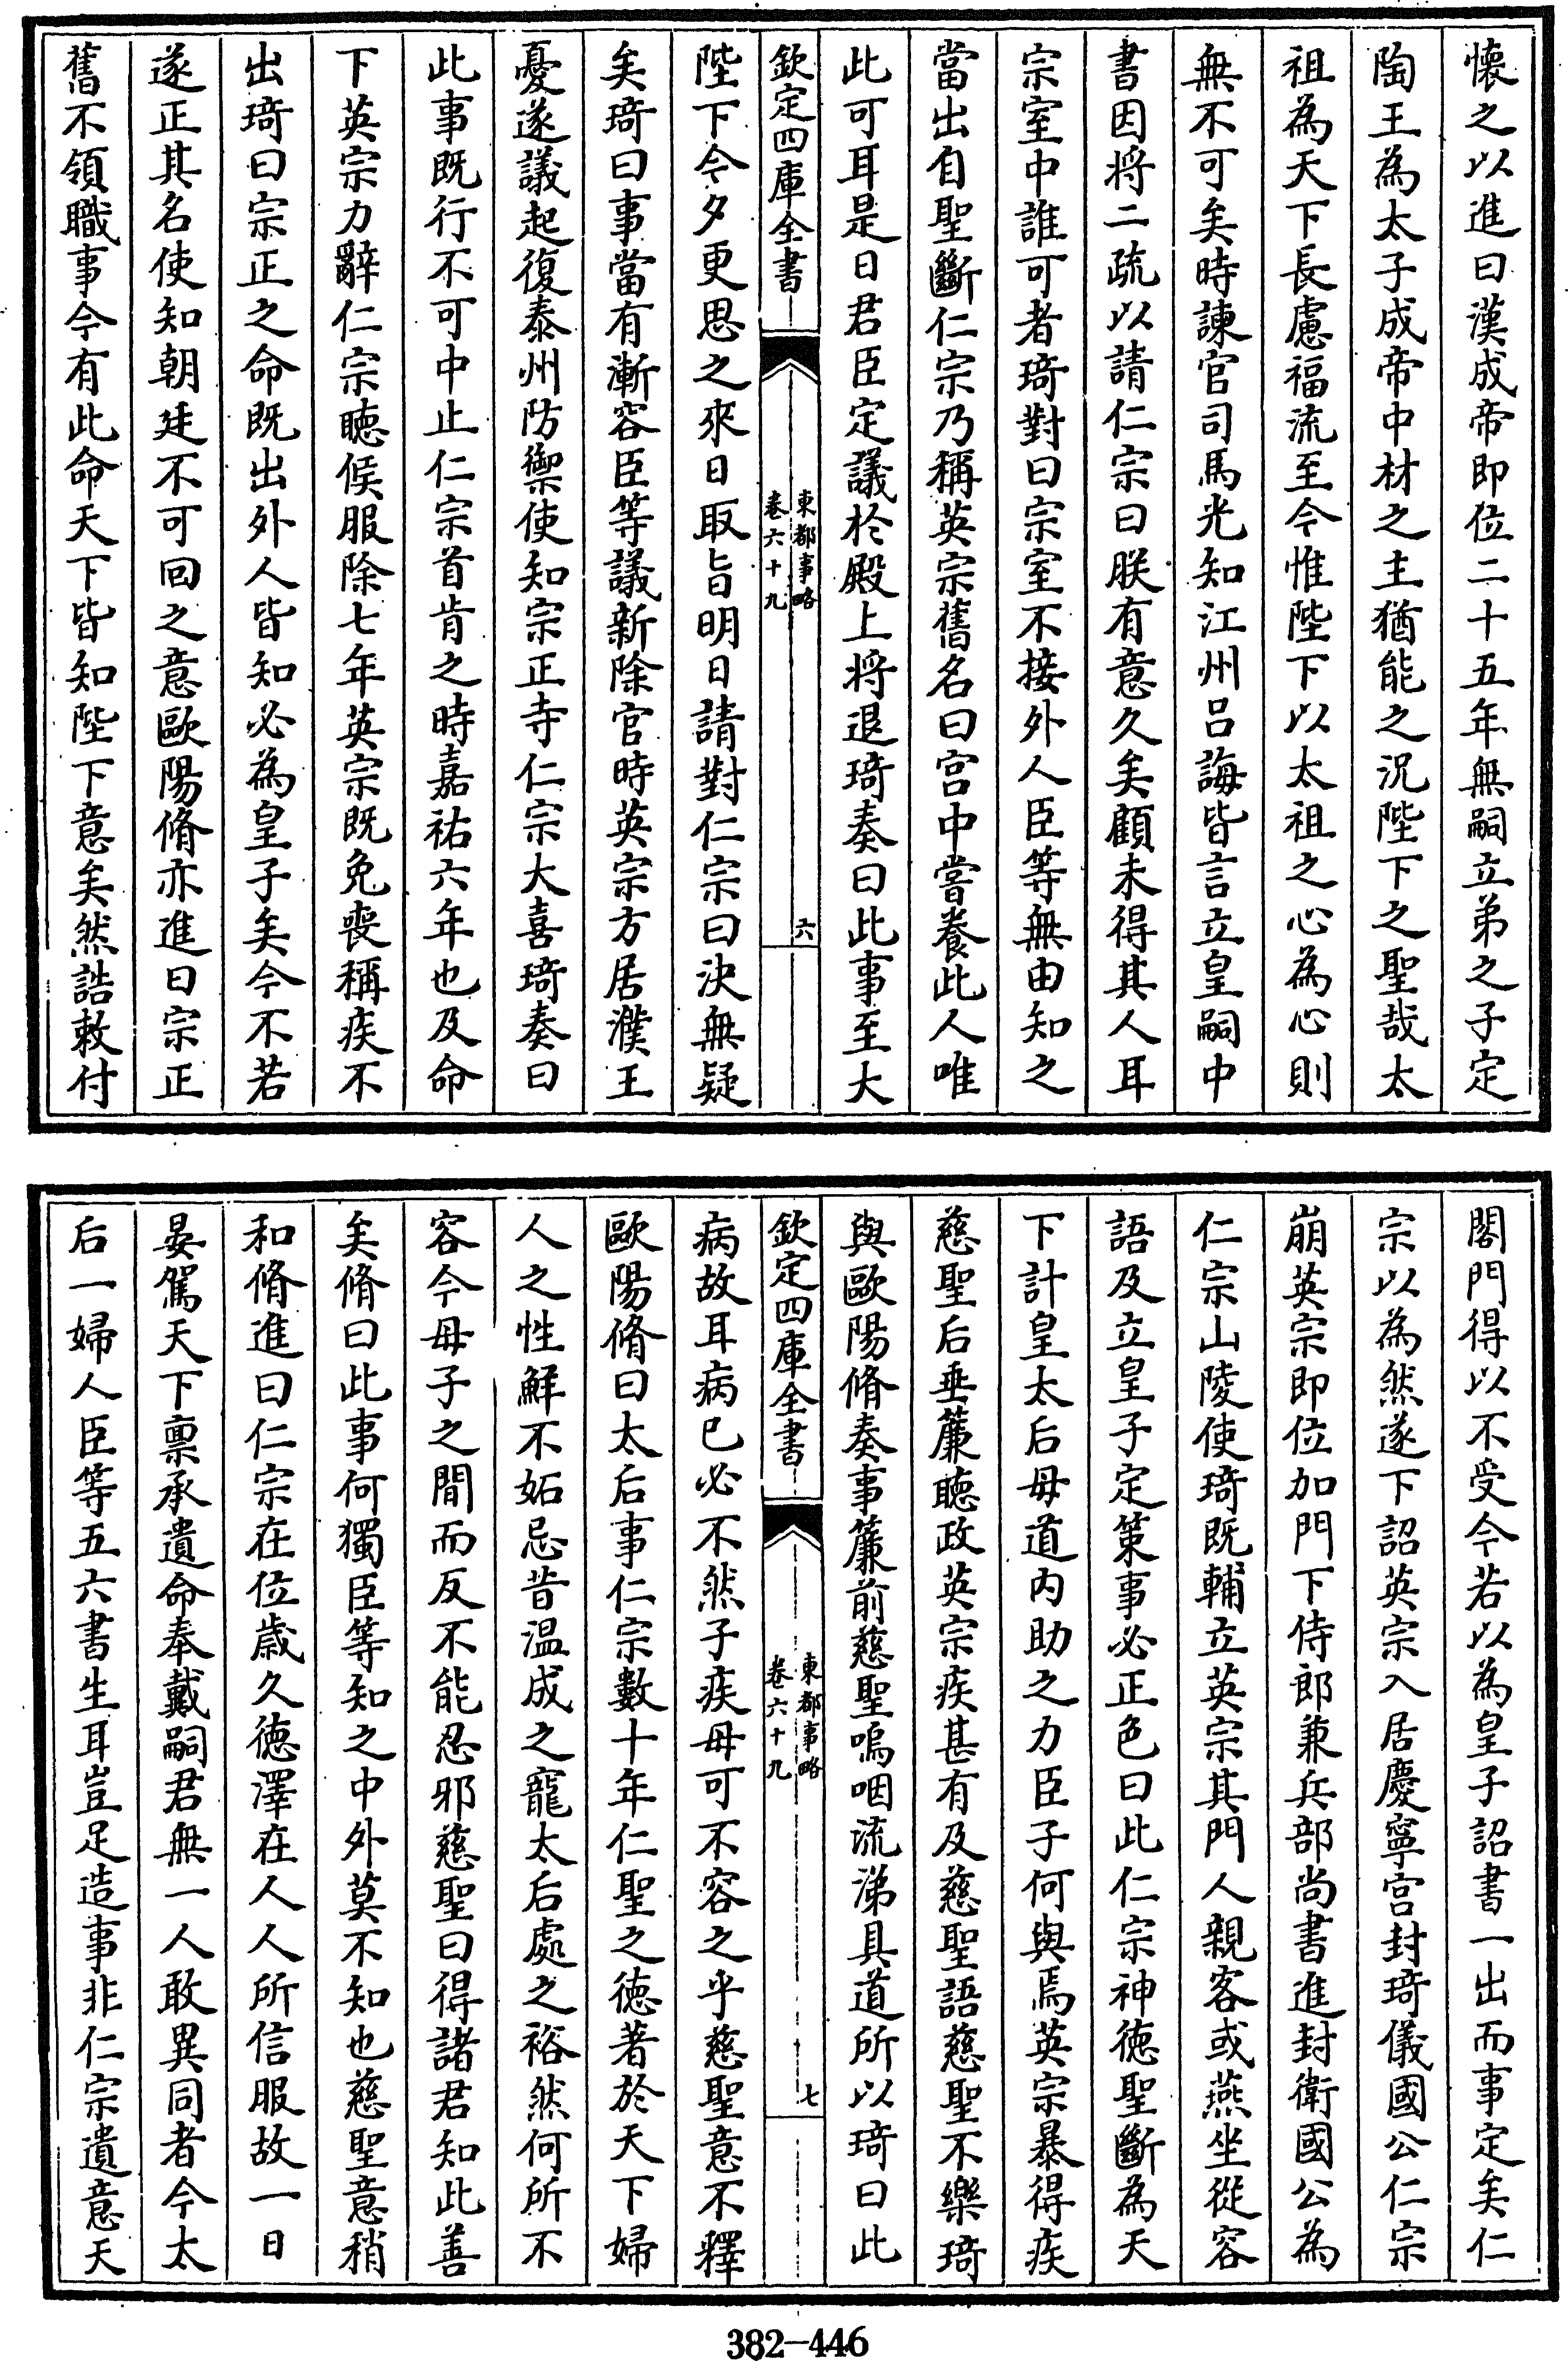 懐之以進曰漢成帝即位二十五年無嗣立弟之子定
陶王為太子成帝中材之主猶能之况陛下之聖哉太
祖為天下長慮福流至今惟陛下以太祖之心為心則
無不可矣時諫官司馬光知江州吕誨皆言立皇嗣中
書因将二疏以請仁宗曰朕有意久矣顧未得其人耳
宗室中誰可者琦對曰宗室不接外人臣等無由知之
當出自聖斷仁宗乃稱英宗舊名曰宫中嘗養此人唯
此可耳是日君臣定議於殿上将退琦奏曰此事至大
欽定四庫全書
東都事略
卷六十九
六
陛下今夕更思之來日取㫖明日請對仁宗曰決無疑
矣琦曰事當有漸容臣等議新除官時英宗方居濮王
憂遂議起復泰州防禦使知宗正寺仁宗大喜琦奏曰
此事既行不可中止仁宗首肯之時嘉祐六年也及命
下英宗力辭仁宗聴候服除七年英宗既免喪稱疾不
出琦曰宗正之命既出外人皆知必為皇子矣今不若
遂正其名使知朝廷不可回之意歐陽脩亦進曰宗正
舊不領職事今有此命天下皆知陛下意矣然誥敕付
閤門得以不受今若以為皇子詔書一出而事定矣仁
宗以為然遂下詔英宗入居慶寧宫封琦儀國公仁宗
崩英宗即位加門下侍郎兼兵部尚書進封衛國公為
仁宗山陵使琦既輔立英宗其門人親客或燕坐從容
語及立皇子定策事必正色曰此仁宗神徳聖斷為天
下計皇太后母道内助之力臣子何與焉英宗暴得疾
慈聖后垂簾聴政英宗疾甚有及慈聖語慈聖不樂琦
與歐陽脩奏事簾前慈聖嗚咽流涕具道所以琦曰此
欽定四庫全書
東都事略
卷六十九
七
病故耳病已必不然子疾母可不容之乎慈聖意不釋
歐陽脩曰太后事仁宗數十年仁聖之徳著於天下婦
人之性鮮不妬忌昔温成之寵太后處之裕然何所不
容今母子之間而反不能忍邪慈聖曰得諸君知此善
矣脩曰此事何獨臣等知之中外莫不知也慈聖意稍
和脩進曰仁宗在位歳久徳澤在人人所信服故一日
晏駕天下禀承遺命奉戴嗣君無一人敢異同者今太
后一婦人臣等五六書生耳豈足造事非仁宗遺意天
382-446